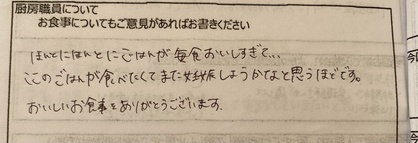 厨房職員について
お食事についてもご意見があればお書きください
ほんとにほんとにごはんが毎食おいしすぎて...
ここのごはんが食べたくてまた妊娠しようかなと思うほどです。
おいしいお食事をありがとうございます.